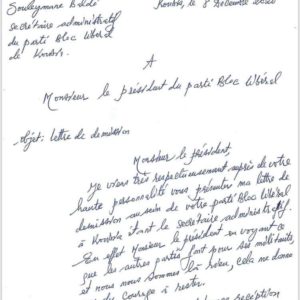 Souleymane Baldé
secrétaire administratif
du parti Bloc Libéral
de Koubia.
Koubia, le 8 Décembre
A
Monsieur le président du parti Bloc Libéral
Objet: lettre de demission
Monsieur le président,
Je viens très respectueusement auprès de votre
haute personnalité vous présenter ma lettre de
demission au sein de votre parti Bloc Libéral
à Koubia étant le secrétaire administratif.
En effet Monsieur le président en voyant ce
que les autres partis font pour ses militants,
et nous nous sommes là rien, cela me donne
du courage à rester.
reception